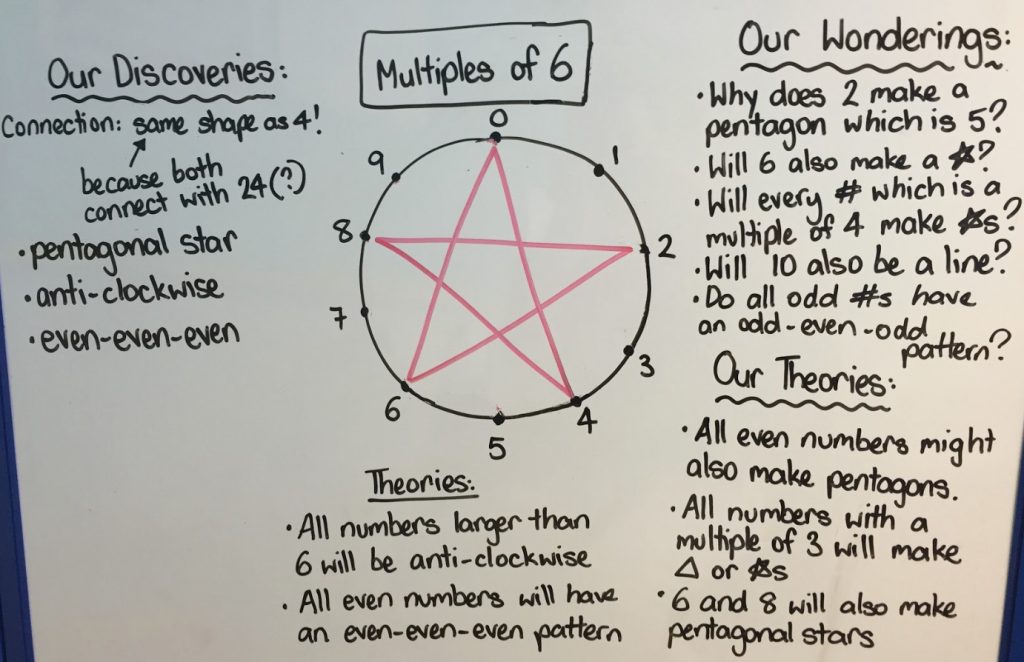 Multiples of 6
Our Discoveries:
Connection: same shape as 4!
because both
connect with 24(?)
• pentagonal star
• anti-clockwise
• even-even-even
0
1
2
3
4
5
6
7
8
9
Theories:
• All numbers larger than
6 will be anti-clockwise
• All even numbers will have
an even-even-even pattern
Our Wonderings:
• Why does 2 make a
pentagon which is 5?
• Will 6 also make a ☆?
• Will every # which is a
multiple of 4 make ☆s?
• Will 10 also be a line?
• Do all odd #s have
an odd-even-odd
pattern?
Our Theories:
• All even numbers might
also make pentagons.
• All numbers with a
multiple of 3 will make
△ or ☆s
• 6 and 8 will also make
pentagonal stars